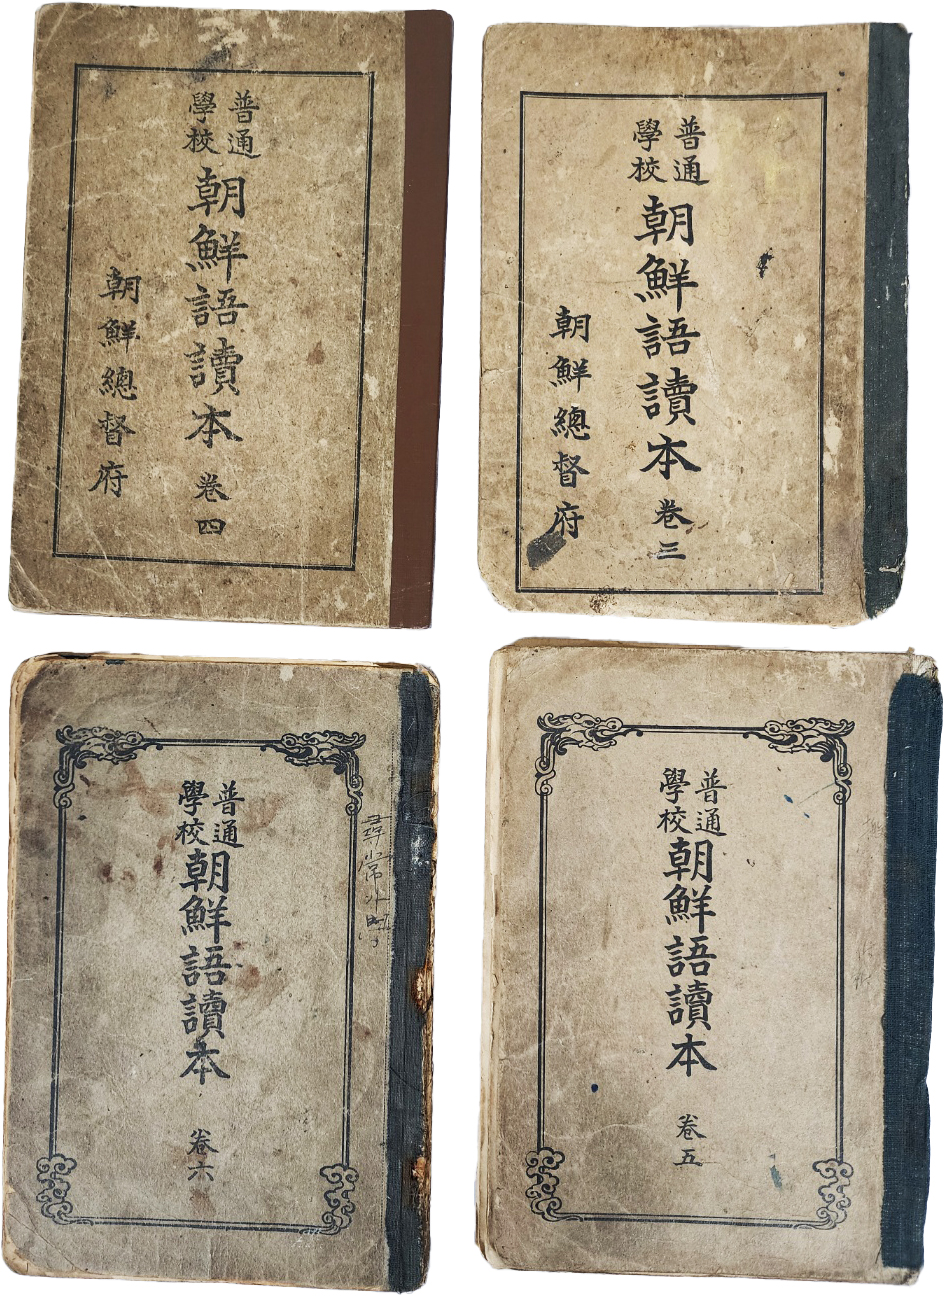 普通
學校
朝鮮語讀本 卷四
朝鮮總督府
普通
學校
朝鮮語讀本 卷三
朝鮮總督府
普通
學校
朝鮮語讀本 卷六
普通
學校
朝鮮語讀本 卷五